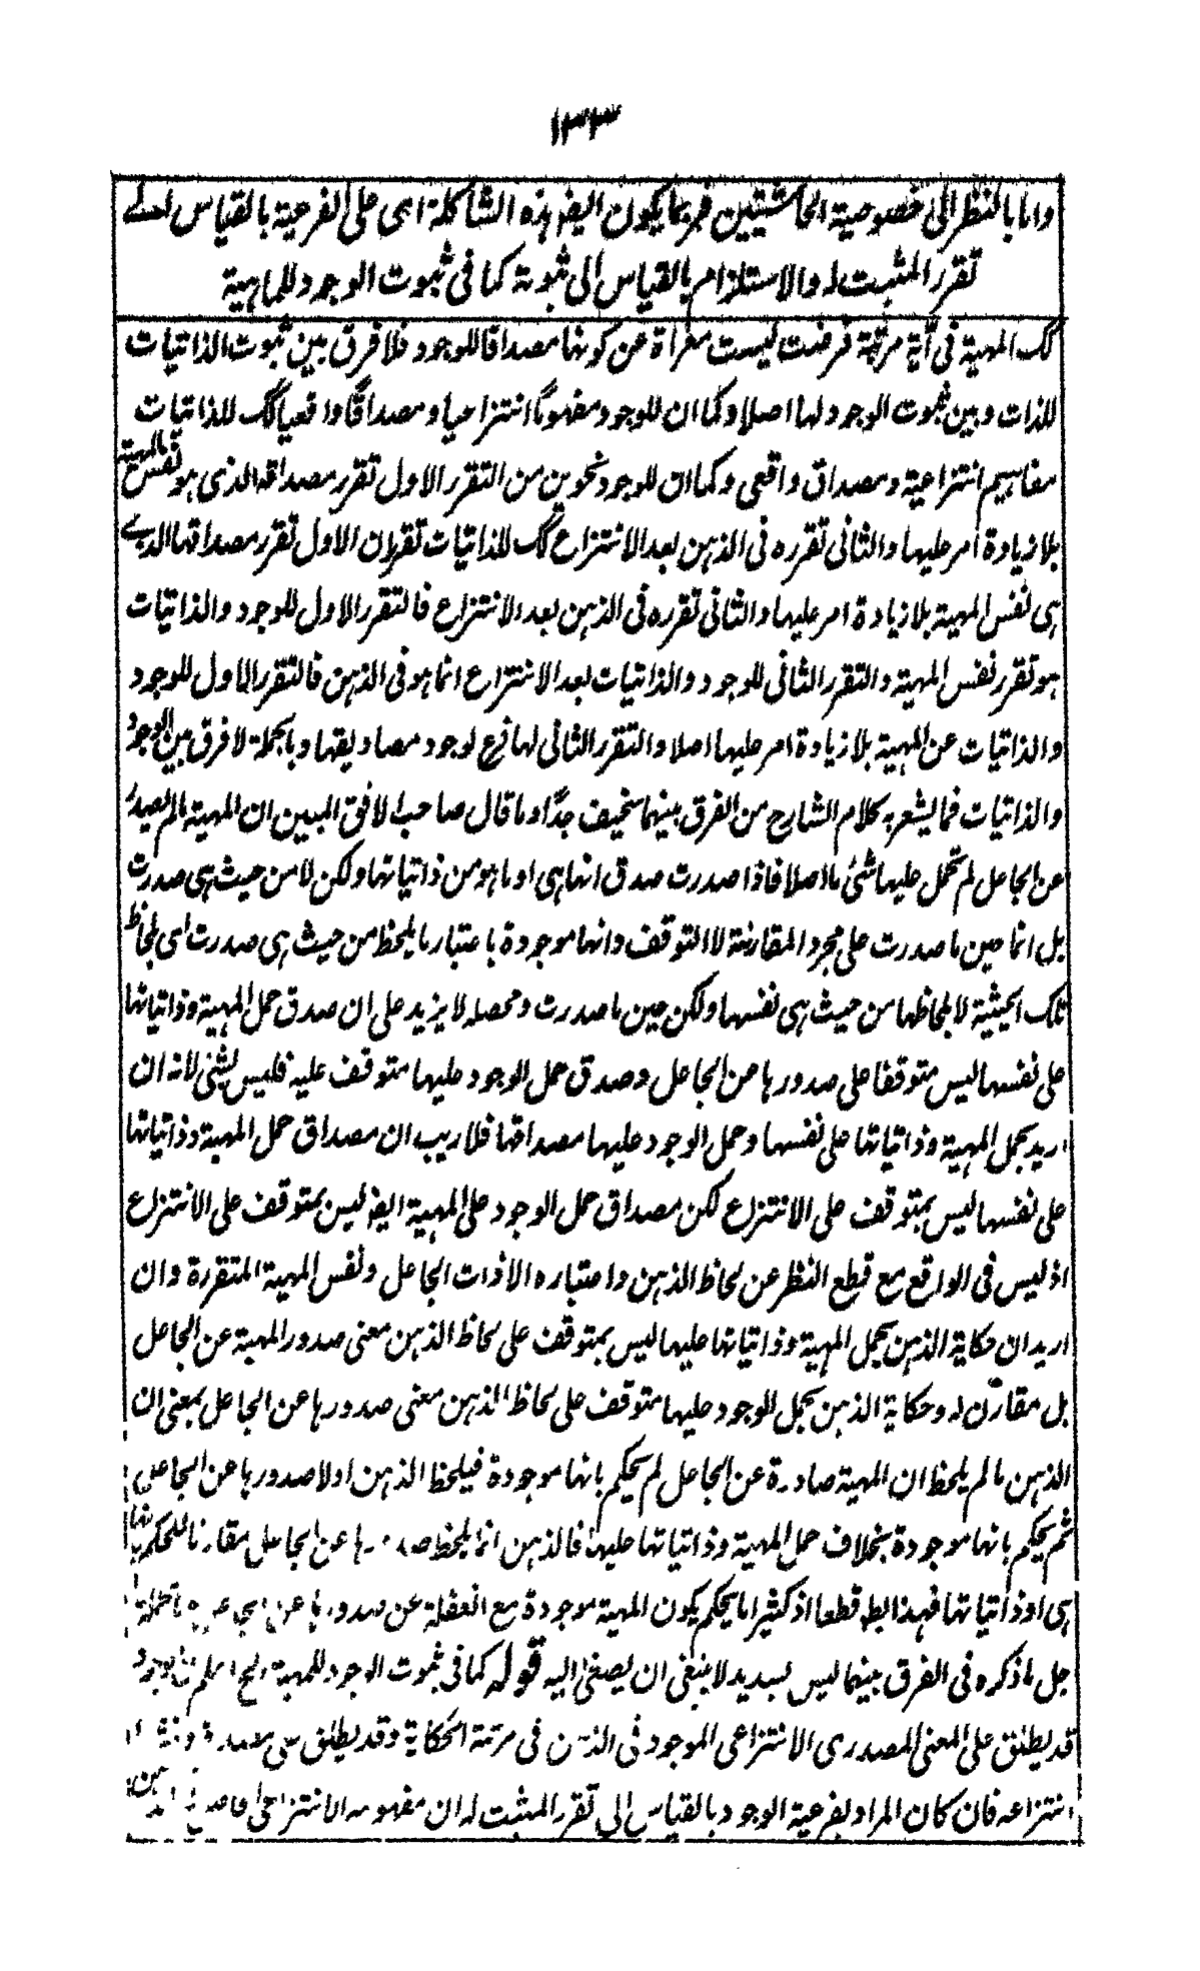 ١٣٣
واما بالنظر الى خصوصية الحاشيتين فربما يكون اليض بهذه الشاكلة اى على الفرعية بالقياس الى
تقرر المثبت له والاستلزام بالقياس الى ثبوته كما فى ثبوت الوجود للماهية
كك المهية فى أية مرتبة فرضت ليست معراة عن كونها مصداقا للوجود فلا فرق بين ثبوت الذاتيات
للذات وبين ثبوت الوجود لها اصلا وكما ان للوجود مفهومًا انتزاعيا ومصداقًا واقعيا كك للذاتيات
مفاهيم انتزاعية ومصداق واقعى وكما ان للوجود نحوين من التقرر الاول تقرر مصداقه الذى هو نفس المهية
بلا زيادة امر عليها والثانى تقرره فى الذهن بعد الانتزاع كك للذاتيات تقرران الاول تقرر مصداقها الذى
هى نفس المهية بلا زيادة امر عليها والثانى تقرره فى الذهن بعد الانتزاع فالتقرر الاول للوجود والذاتيات
هو تقرر نفس المهية والتقرر الثانى للوجود والذاتيات بعد الانتزاع انما هو فى الذهن فالتقرر الاول للوجود
والذاتيات عن المهية بلا زيادة امر عليها اصلا والتقرر الثانى لها فرع لوجود مصاديقها وبالجملة لا فرق بين الوجود
والذاتيات فما يشعر به كلام الشارح من الفرق بينهما سخيف جدًا وما قال صاحب الافق المبين ان المهية ما لم يصدر
عن الجاعل لم تحمل عليها شئ ما اصلا فاذا صدرت صدق انها هى او ما هو من ذاتياتها ولكن لا من حيث هى صدرت
بل انما حين ما صدرت على مجرد المقارنة لا التوقف وانها موجودة باعتبار ما يلحظ من حيث هى صدرت اى بلحاظ
تلك الحيثية لا بلحاظها من حيث هى نفسها ولكن حين ما صدرت ومحصله لا يزيد على ان صدق حمل المهية وذاتياتها
على نفسها ليس متوقفا على صدورها عن الجاعل وصدق حمل الوجود عليها متوقف عليه فليس بشئ لانه ان
اريد بحمل المهية وذاتياتها على نفسها وحمل الوجود عليها مصداقها فلا ريب ان مصداق حمل المهية وذاتياتها
على نفسها ليس بمتوقف على الانتزاع لكن مصداق حمل الوجود على المهية اليض ليس بمتوقف على الانتزاع
اذ ليس فى الواقع مع قطع النظر عن لحاظ الذهن واعتباره الا ذات الجاعل ونفس المهية المتقررة وان
اريد ان حكاية الذهن بحمل المهية وذاتياتها عليها ليس بمتوقف على لحاظ الذهن معنى صدور المهية عن الجاعل
بل مقارن له وحكاية الذهن بحمل الوجود عليها متوقف على لحاظ الذهن معنى صدورها عن الجاعل بمعنى ان
الذهن ما لم يلحظ ان المهية صادرة عن الجاعل لم يحكم بانها موجودة فيلحظ الذهن اولا صدورها عن الجاعل
ثم يحكم بانها موجودة بخلاف حمل المهية وذاتياتها عليها فالذهن انما يلحظ صدورها عن الجاعل مقارنا للحكم بانها
هى او ذاتياتها فهذا بط قطعا اذ كثيرا ما يحكم بكون المهية موجودة مع الغفلة عن صدورها عن الجاعل وبالجملة
جل ما ذكره فى الفرق بينهما ليس بسديد لا ينبغى ان يصغى اليه قوله كما فى ثبوت الوجود للمهية الخ اعلم ان الوجود
قد يطلق على المعنى المصدرى الانتزاعى الموجود فى الذهن فى مرتبة الحكاية وقد يطلق على مصداقه ومنشأ
انتزاعه فان كان المراد بفرعية الوجود بالقياس الى تقرر المثبت له ان مفهومه الانتزاعى